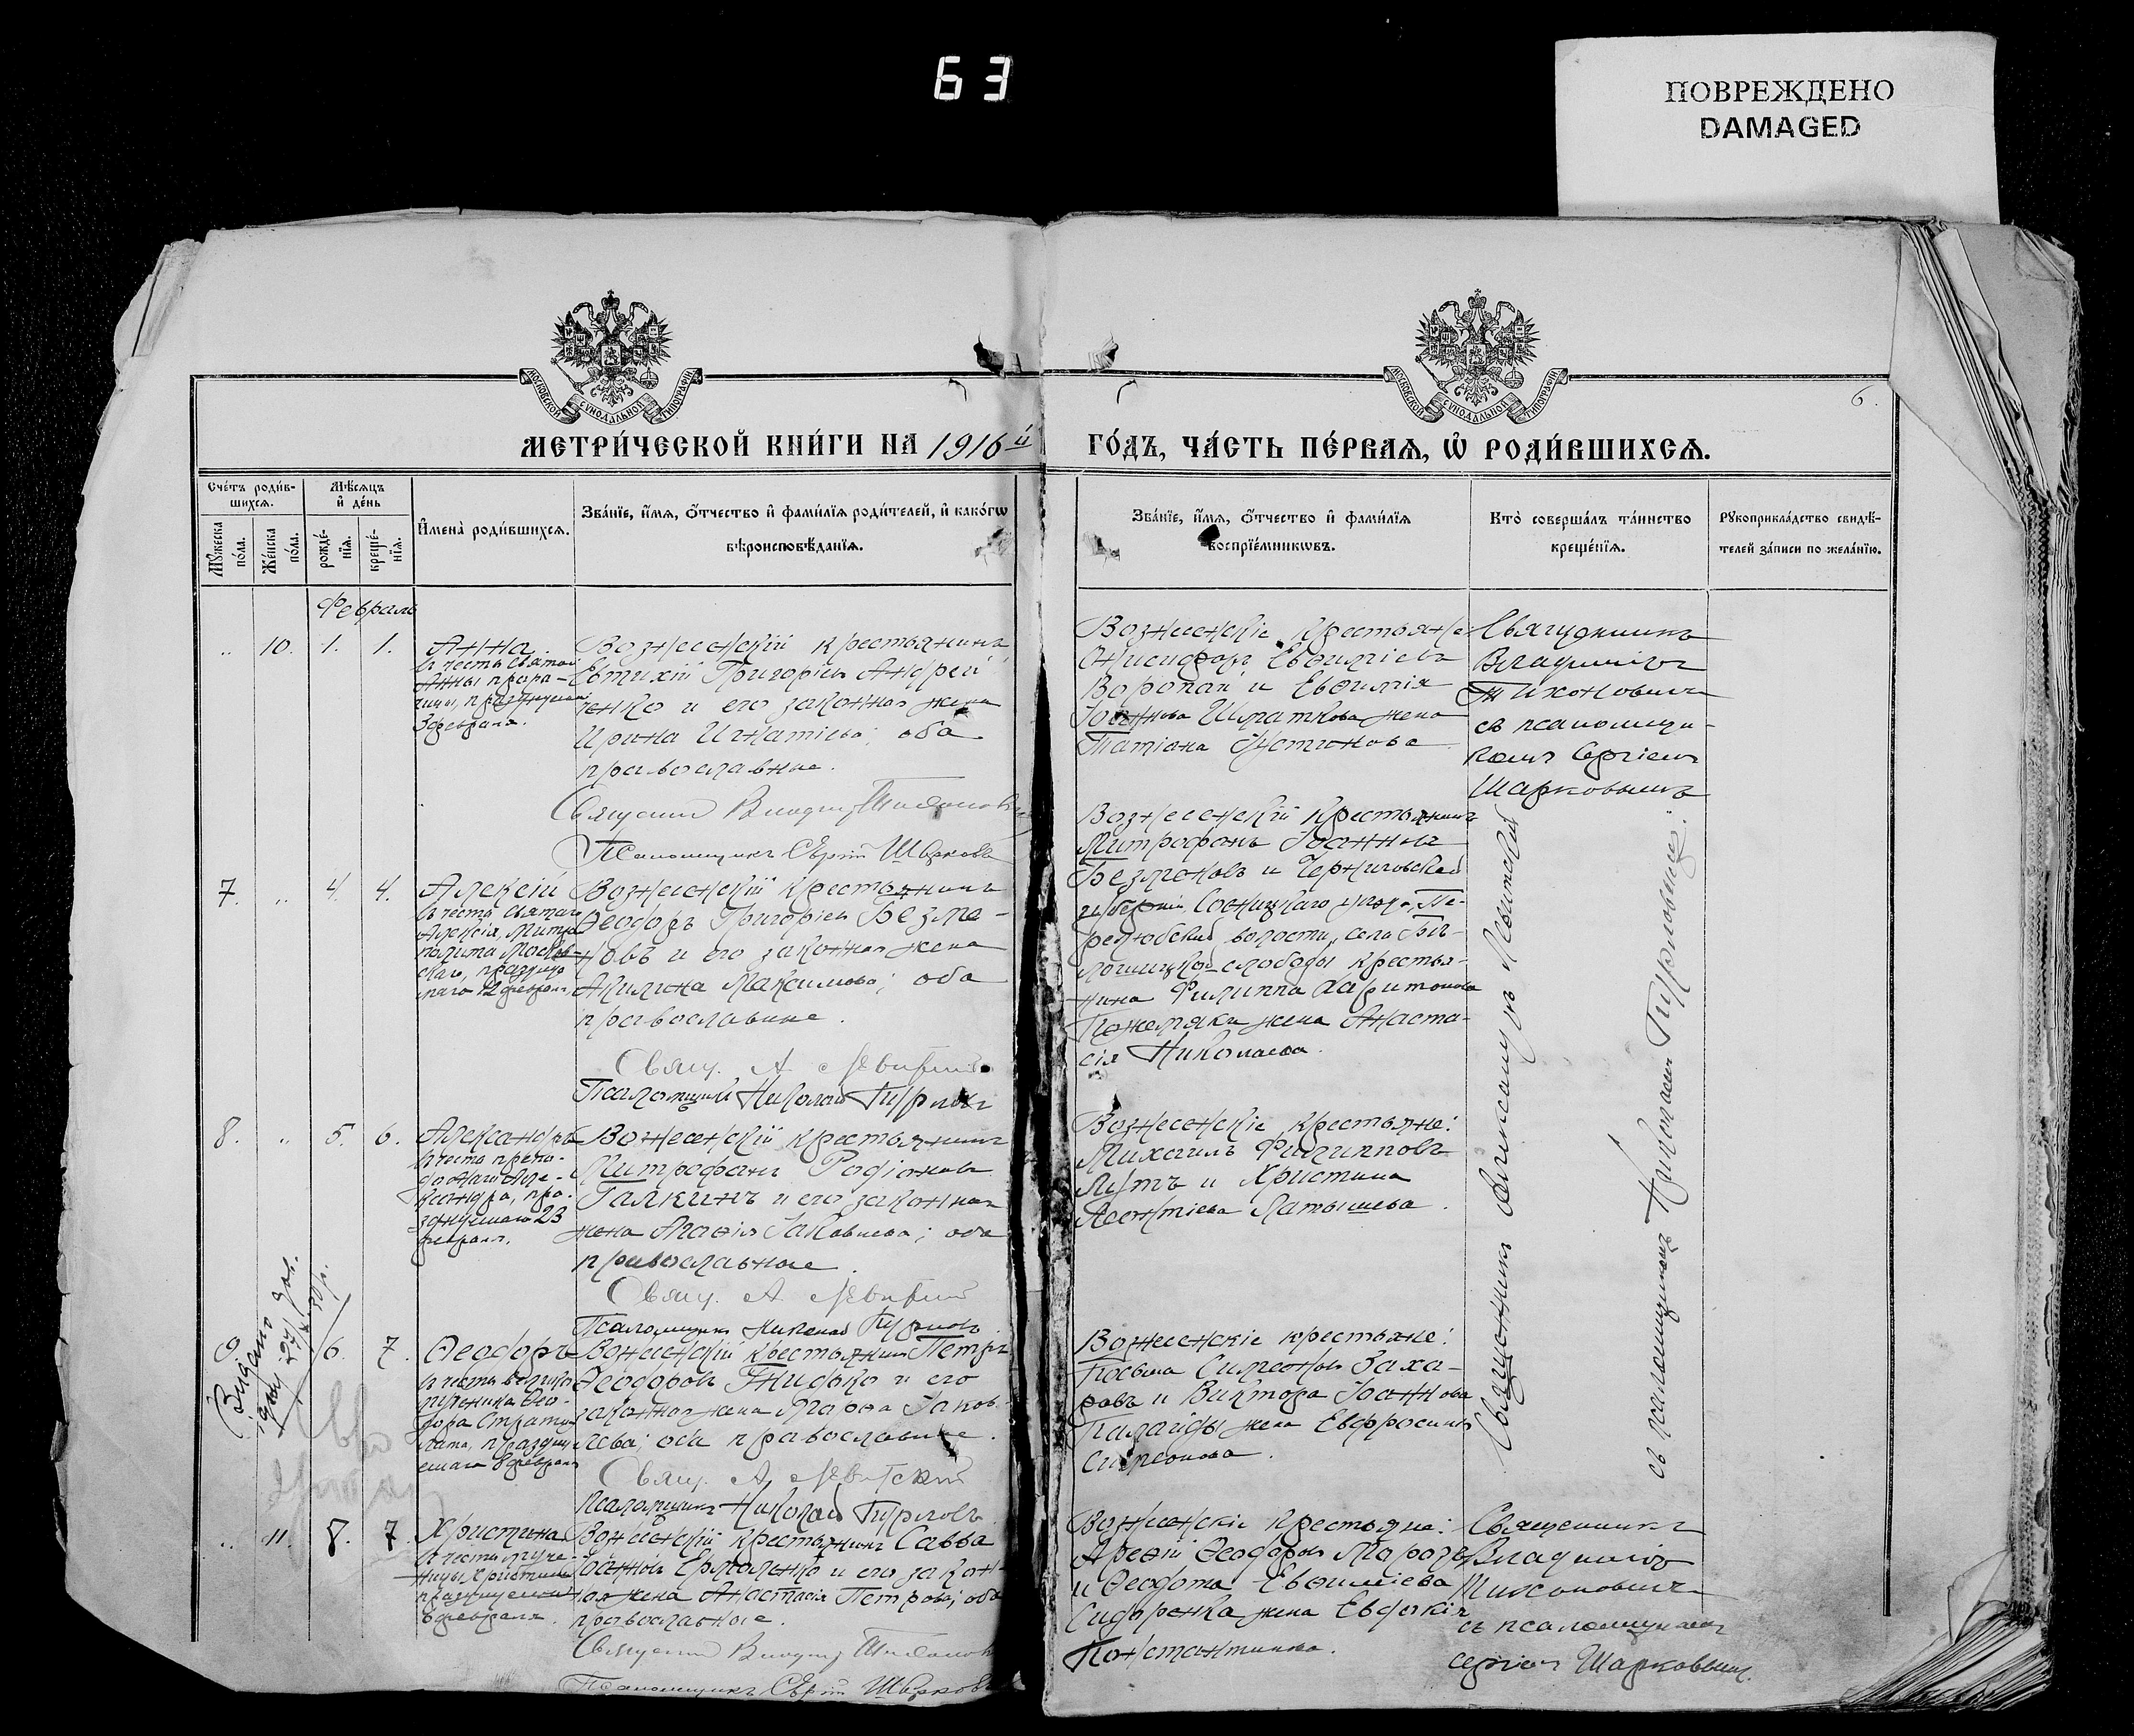 63
ПОВРЕЖДЕНО
DAMAGED
МОСКОВСКОЙ СѴНОДАЛЬНОЙ ТИПОГРАФІИ
МОСКОВСКОЙ СѴНОДАЛЬНОЙ ТИПОГРАФІИ
6.
МЕТРИ́ЧЕСКОЙ КНИ́ГИ НА 1916й
ГО́ДЪ, ЧА́СТЬ ПЕ́РВАѦ, Ѡ РОДИ́ВШИХСѦ.
Сче́тъ роди́в-
шихсѧ.
Мꙋ́жеска по́ла.
Же́нска по́ла.
Мѣ́сѧцъ
и҆ де́нь
рожде́-
нїѧ.
креще́-
нїѧ.
И҆мена̀ роди́вшихсѧ.
Зва́нїе, и҆́мѧ, ѻ҆́тчество и҆ фами́лїѧ роди́телей, и҆ како́гѡ
вѣроисповѣ́данїѧ.
Зва́нїе, и҆́мѧ, ѻ҆́тчество и҆ фами́лїѧ
воспрїе́мникѡвъ.
Кто̀ соверша́лъ та́инство
креще́нїѧ.
Рꙋкоприкла́дство свидѣ́-
телей за́писи по жела́нїю.
Февраль
„ 10. 1. 1.
Анна.
въ честь святой
Анны проро-
чицы, празднуемой
3 февраля.
Вознесенскій крестьянинъ
Евтихій Григорьевъ Андрей
ченко и его законная жена
Ирина Игнатіева; оба
православные.
Священникъ Владиміръ Тихоновичъ
Псаломщикъ Сергій Шарковъ
Вознесенскіе крестьяне
Онисифоръ Евѳиміевъ
Воропай и Евѳимія
Іоаннова Шматкова жена
Татіана Устинова
Священникъ
Владиміръ
Тихоновичъ
съ псаломщи-
комъ Сергіемъ
Шарковымъ
7. „ 4. 4.
Алексій
въ честь святаго
Алексія, Митро
полита Москов-
скаго, праздуе
маго 12 февраля.
Вознесенскій крестьянинъ
Ѳеодоръ Григорьевъ Безме-
новъ и его законная жена
Акилина Максимова; оба
православные.
Свящ. А Левитскій
Псаломщикъ Николай Гурловъ
Вознесенскій крестьянинъ
Митрофанъ Іоанновъ
Безменовъ и Черниговской
губерніи, Сосницкаго уѣзда, Пе-
релюбской волости, села
слободы крестья-
нина Филиппа Харитонова
Пожемяки жена Анаста-
сія Николаева.
Священникъ Александръ Левитскій
съ псаломщикомъ Николаемъ Гурловымъ.
8. „ 5. 6.
Александръ
въ честь препо-
добнаго Але-
ксандра, пра-
зднуемаго 23
февраля.
Вознесенскій крестьянинъ
Митрофанъ Родіоновъ
Галкинъ и его законная
жена Агаѳія Іаковлева; оба
православные.
Свящ. А Левитскій
Псаломщикъ Николай Гурловъ
Вознесенскіе крестьяне:
Михаилъ Филипповъ
Лутъ и Христина
Леонтіева Латышева.
9. 6. 7.
Ѳеодоръ
въ честь велико
мученика Ѳео-
дора Стратил
лата, праздну
емаго 8 февраля
Вознесенскій крестьянинъ Петръ
Ѳеодоровъ Гнидко и его
законная жена Марѳа Іаков-
лева; оба православные.
Свящ. А. Левитскій
Псаломщикъ Николай Гурловъ
Вознесенскіе крестьяне:
Косьма Симеоновъ Заха-
ровъ и Виктора Іоаннова
жена Евфросинія
Симеонова.
„ 11. 8. 7
Христина
въ честь муче-
ницы Христины
празднуемой
6 февраля.
Вознесенскій крестьянинъ Савва
Іоанновъ Ермоленко и его закон-
ная жена Анастасія Петрова; оба
православные.
Священникъ Владиміръ Тихоновичъ
Псаломщикъ Сергій Шарковъ
Вознесенскіе крестьяне:
Ѳеодоровъ Морозъ
и Ѳеодота Евѳиміева
Сидоренка жена Евдокія
Константинова.
Священникъ
Владиміръ
Тихоновичъ
съ псаломщикомъ
Сергіемъ Шарковымъ.